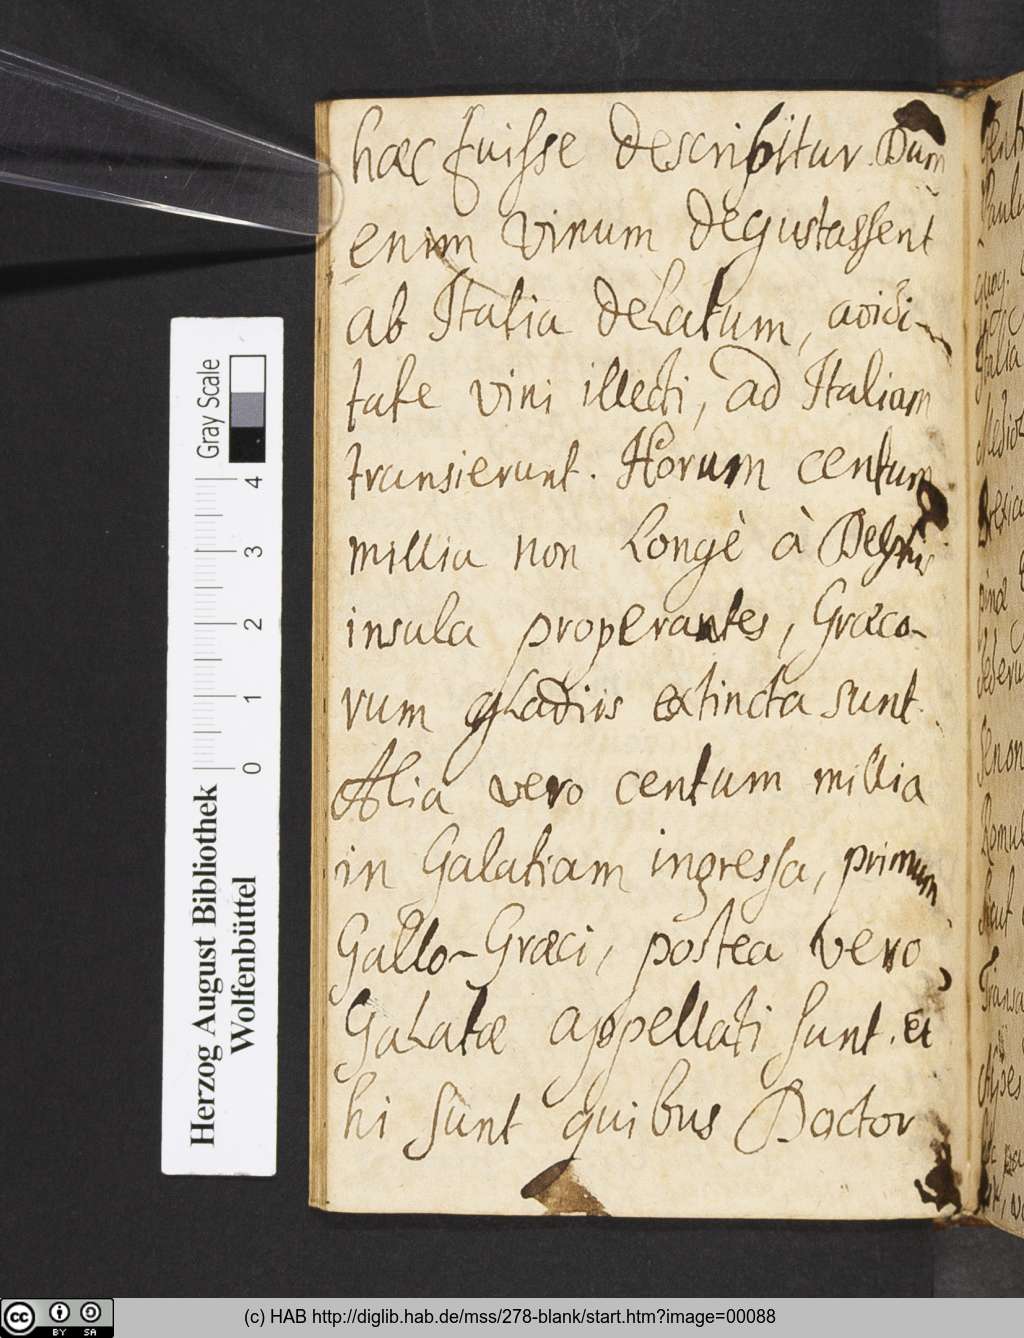 hæc fuisse describitur. Dum
enim vinum degustassent
ab Italia delatum, avidi-
tate vini illecti, ad Italiam
transierunt. Horum centum
millia non longè à Delphis
insula properantes, Græco-
rum gladiis extincta sunt.
Alia vero centum millia
in Galatiam ingressa, primum
Gallo-Græci, postea vero
Galatæ appellati sunt. Et
hi sunt quibus Doctor
Gray Scale
0 1 2 3 4
Herzog August Bibliothek
Wolfenbüttel
cc BY SA
(c) HAB http://diglib.hab.de/mss/278-blank/start.htm?image=00088